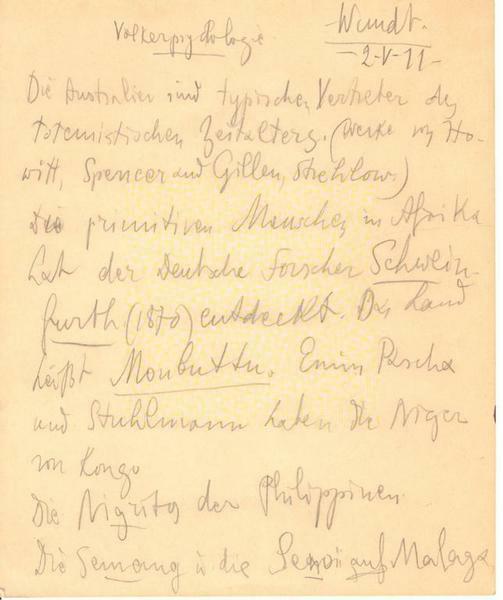 Völkerpsychologie
Wundt.
2-V-11-
Die Australier sind typische Vertreter des
totemistischen Zeitalters. (Werke von Ho-
witt, Spencer and Gillen, Strehlow)
Die primitiven Menschen in Afrika
hat der Deutsche Forscher Schwein-
furth (1870) entdeckt. Das Land
heißt Monbuttu. Emin Pascha
und Stuhlmann haben die Niger
von Kongo
Die Nigritos der Philippinen
Die Semang u die auf Malaga